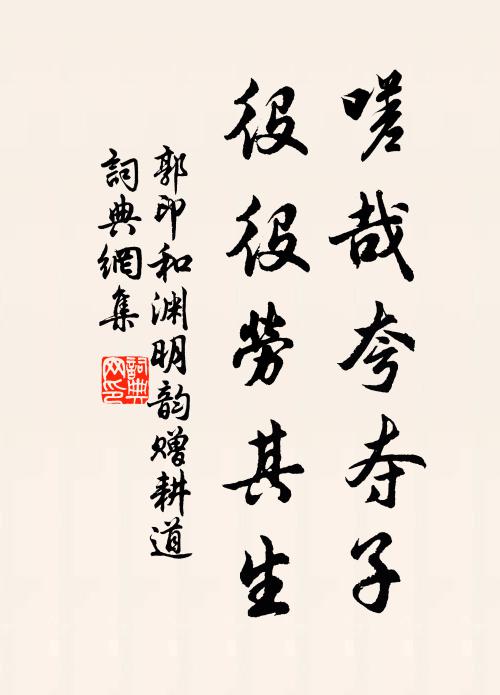 嗟哉夸夺子
役役勞其生
郭印和渊明韵贈耕道
詞典網集
詞典网印